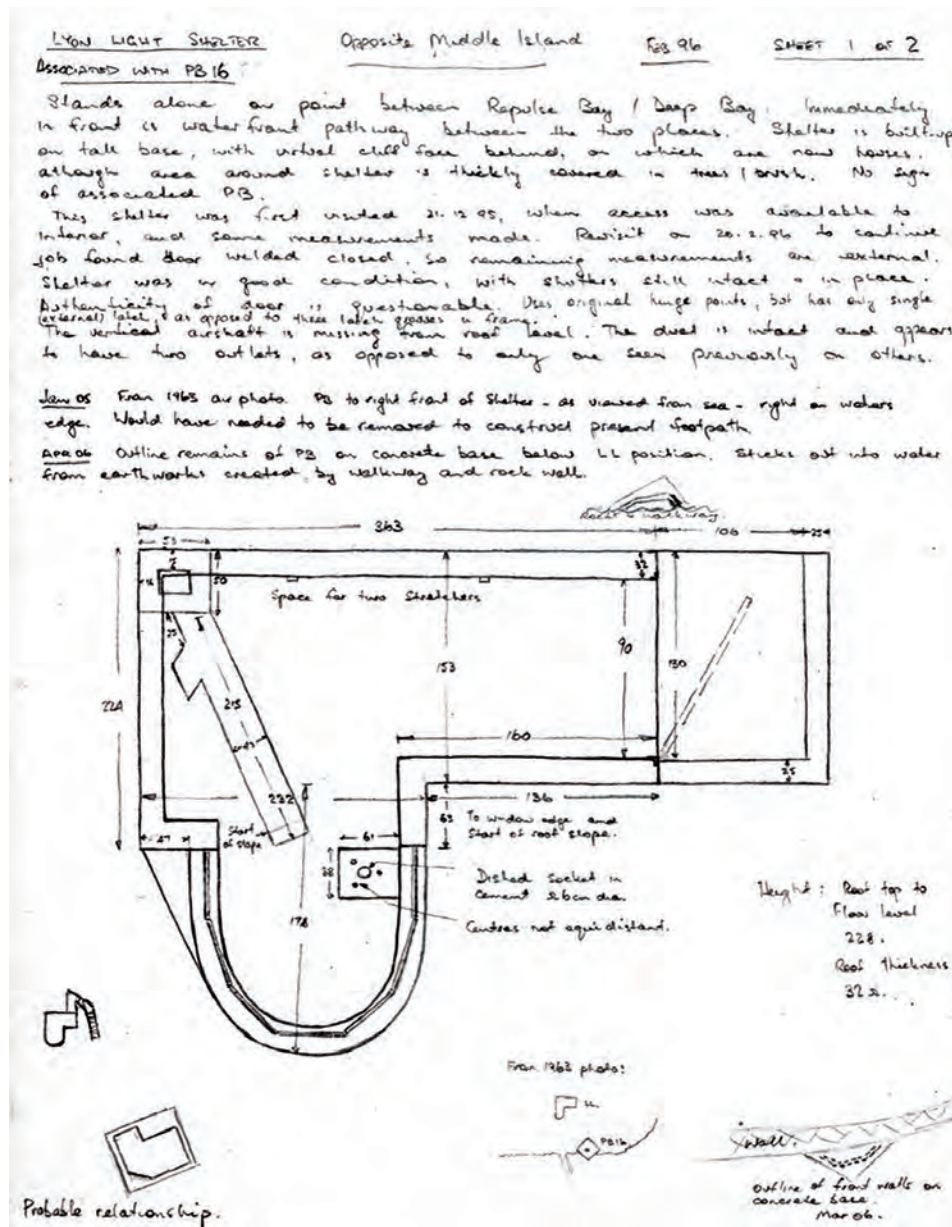 LYON LIGHT SHELTER Opposite Middle Island FEB 96 SHEET 1 OF 2
ASSOCIATED WITH PB 16
Stands alone on point between Repulse Bay / Deep Bay. Immediately
in front is waterfront pathway between the two places. Shelter is built up
on tall base, with virtual cliff face behind, on which are now houses,
although area around shelter is thickly covered in trees / brush. No sign
of associated PB.
This shelter was first visited 21.12.95, when access was available to
interior, and some measurements made. Revisit on 20.2.96 to continue
job found door welded closed, so remaining measurements are external.
Shelter was in good condition, with shutters still intact & in place.
Authenticity of door is questionable. Uses original hinge points, but has only single
(external) latch, as opposed to three latch grooves in frame.
The vertical airshaft is missing from roof level. The duct is intact and appears
to have two outlets, as opposed to only one seen previously on others.
Jan 05 From 1963 air photo. PB to right front of shelter - as viewed from sea - right on waters
edge. Would have needed to be removed to construct present footpath.
APR 06 Outline remains of PB on concrete base below LL position. Sticks out into water
from earthworks created by walkway and rock wall.
Rocks walkway
363
106
25
53
50
32
Space for two Stretchers
224
25
215
153
90
130
160
25
232
136
63
To window edge and
Start of roof slope.
Start
of slope
47
61
38
Dished socket in
cement
Centres not equidistant.
178
Height: Roof top to
Floor level
228.
Roof thickness
32
From 1963 photo:
LL
PB16
Wall.
Outline of front walls on
concrete base.
Mar 06.
Probable relationship.